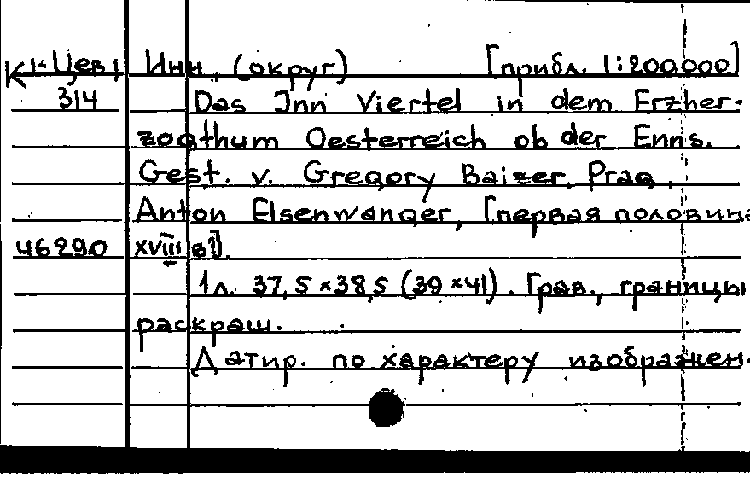 К1-Цев1 Инн, (округ) [прибл. 1:200000]
314 Das Inn Viertel in dem Erzher-
zogthum Oesterreich ob der Enns.
Gest. v. Gregory Baizer. Prag,
Anton Elsenwanger, [первая половина
46290 XVIII в].
1 л. 37,5×38,5 (39×41). Грав., границы
раскраш.
Датир. по характеру изображен.